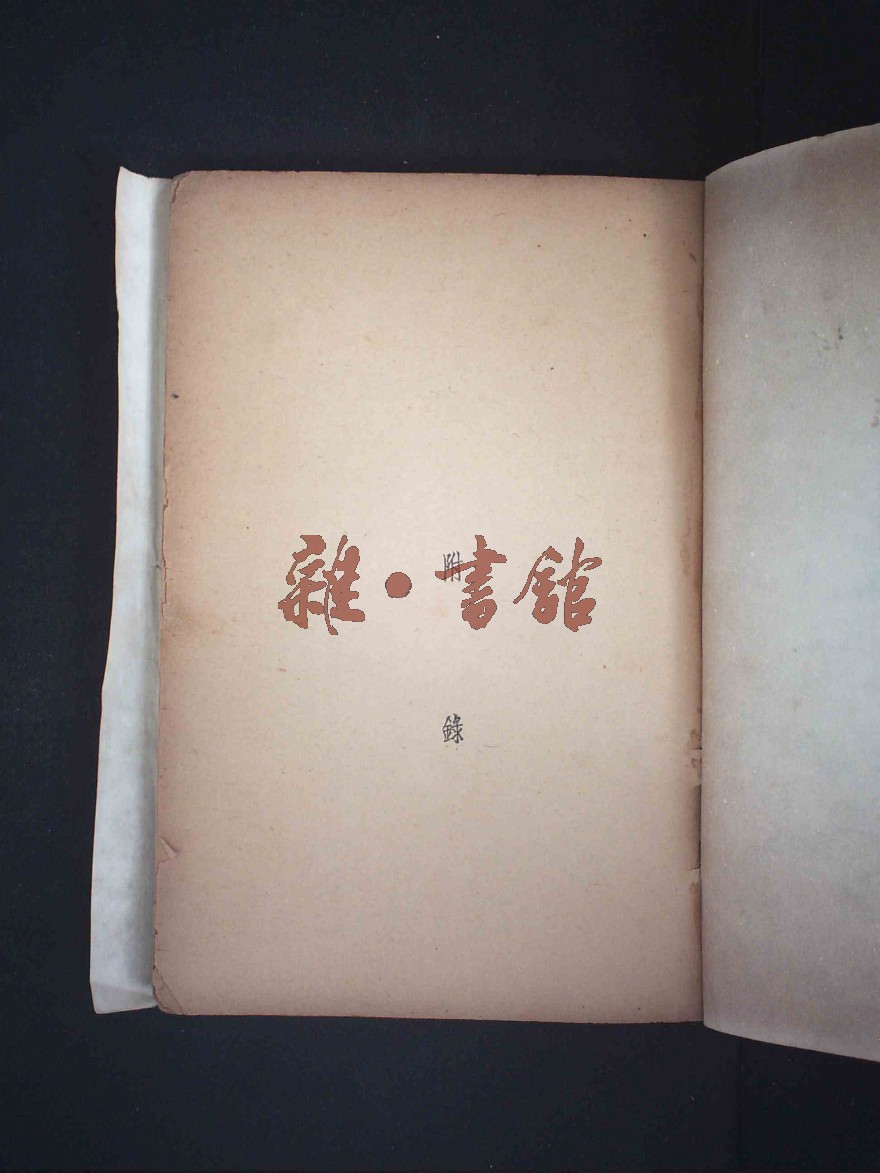 雜·書館
附
錄